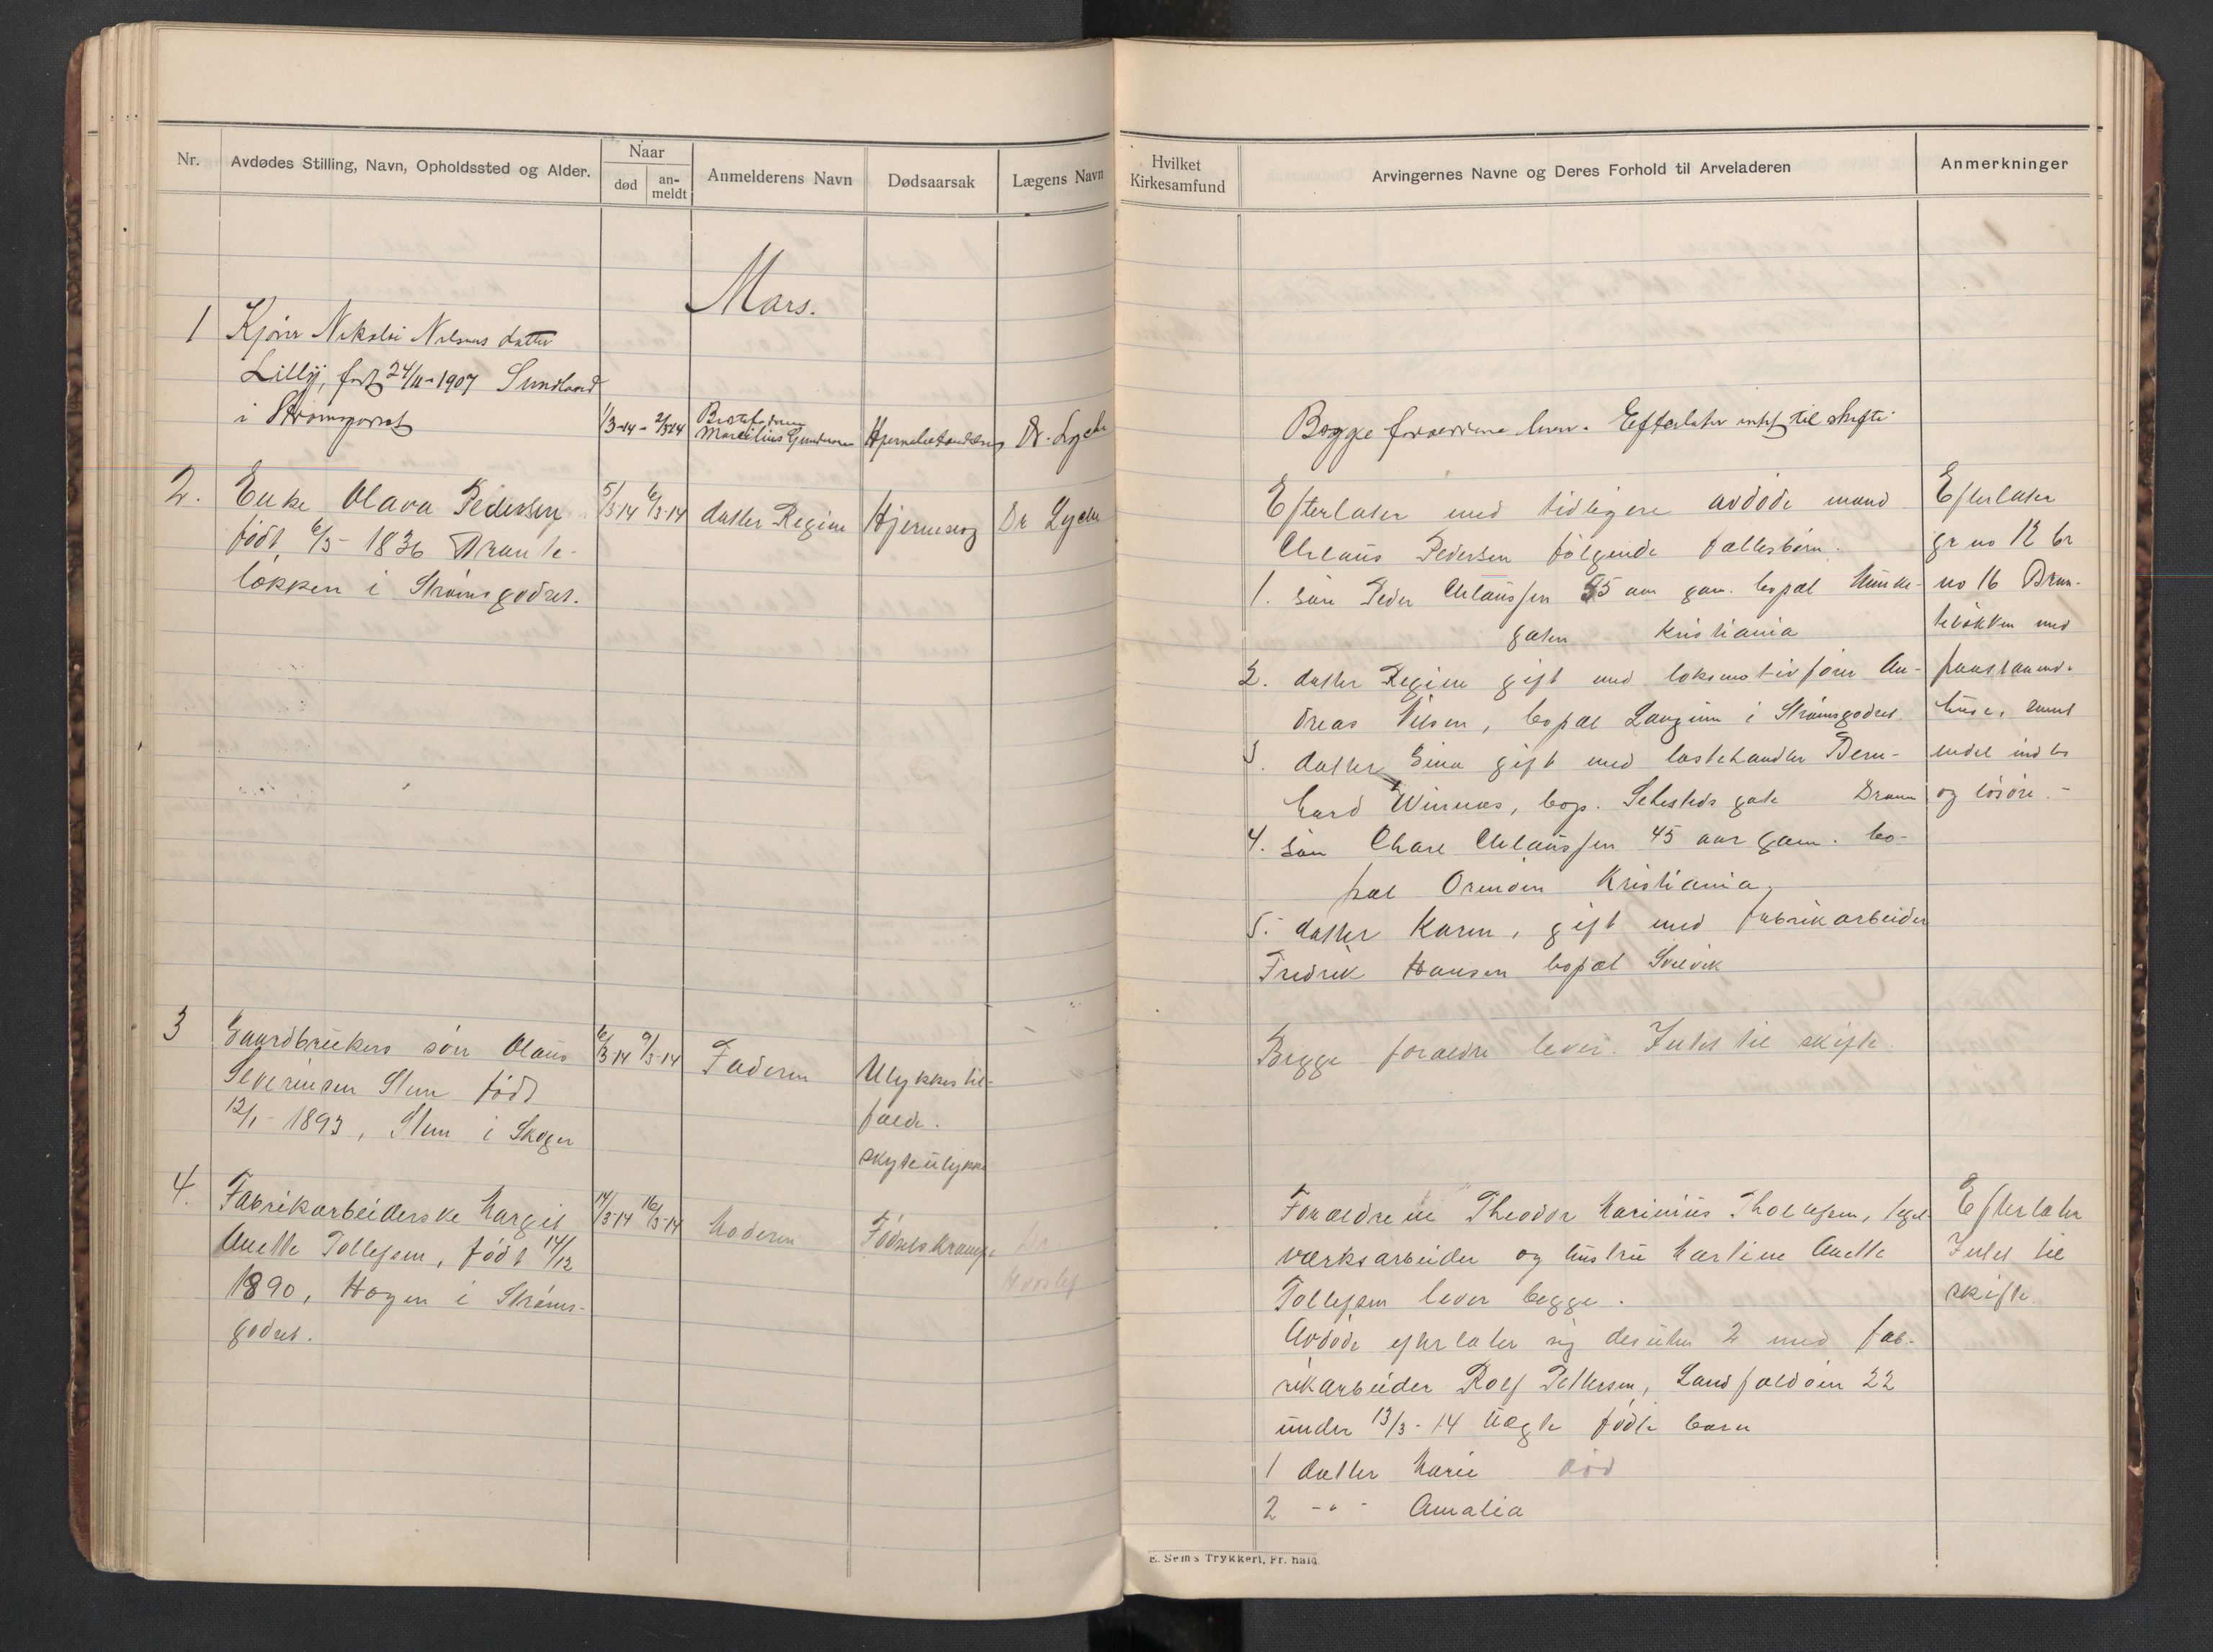 Nr.
Avdødes Stilling, Navn, Opholdssted og Alder.
Naar
død
an-
meldt
Anmelderens Navn
Dødsaarsak
Lægens Navn
Mars.
1 Kjører Nikolai Nilsens datter
Lilly, født 24/11-1907 Sundland
i Strømsgodset
1/3-14 - 2/3-14
Bestefaderen
Marcilius Gundersen
Hjernebetændelse
Dr. Lyche
2. Enke Olava Pedersen
født 6/5-1836 Brante-
løkken i Strømsgodset.
5/3-14 6/3-14
datter Regine
Hjerneslag
Dr Lyche
3 Gaardbrukers søn Olaus
Severinsen Stun født
12/1-1893, Stun i Skoger
6/3-14 9/3-14
Faderen
Ulykkestil-
fælde.
skyteulykke
4. Fabrikarbeiderske Margit
Anette Tollefsen, født 14/12
1890, Hagen i Strøms-
godset.
14/3-14 16/3-14
Moderen
Fødselskrampe
Dr.
Hvilket
Kirkesamfund
Arvingernes Navne og Deres Forhold til Arveladeren
Anmerkninger
Begge forældrene lever. Efterlater intet til skifte
Efterlater med tidligere avdøde mand
Chlaus Pedersen følgende fællesbørn.
1. søn Peder Claussen 55 aar gam. bopæl Munke-
gaten Kristiania
2. datter Regine gift med lokomotivfører An-
dreas Nilsen, bopæl Langum i Strømsgodset.
3. datter Gina gift med lastehandler Bern-
hard Winnæs, bop. Sehesteds gate Dramm
4. søn Charl Chlaussen 45 aar gam. bo-
pæl Kristiania,
5. datter Karen, gift med fabrikarbeider
Fredrik Hansen bopæl Svelvik
Efterlater
gr no 12 br
no 16 Bran-
teløkken med
paastaaend.
huse, samt
endel indbo
og løsøre.-
Begge forældre lever. Intet til skifte.
Forældrene Theodor Marinius Thollefsen, tegl-
værksarbeider og hustru Martine Anette
Tollefsen lever begge.
Avdøde efterlater sig desuten 2 med fab-
rikarbeider Rolf Pettersen, Landfaldøen 22
under 13/3-14 uægte fødte barn
1 datter Marie død
2 -"- Amalia
Efterlater
Intet til
skifte
E. Sem's Trykkeri, Fr. hald.